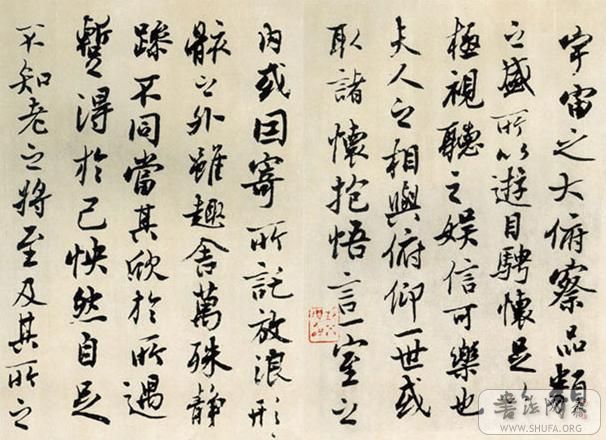 宇宙之大俯察品類
之盛所以遊目騁懷足以
極視聽之娛信可樂也
夫人之相與俯仰一世或
取諸懷抱悟言一室之
內或因寄所託放浪形
骸之外雖趣舍萬殊靜
躁不同當其欣於所遇
暫得於己怏然自足
不知老之將至及其所之
書法網
WWW.SHUFA.ORG